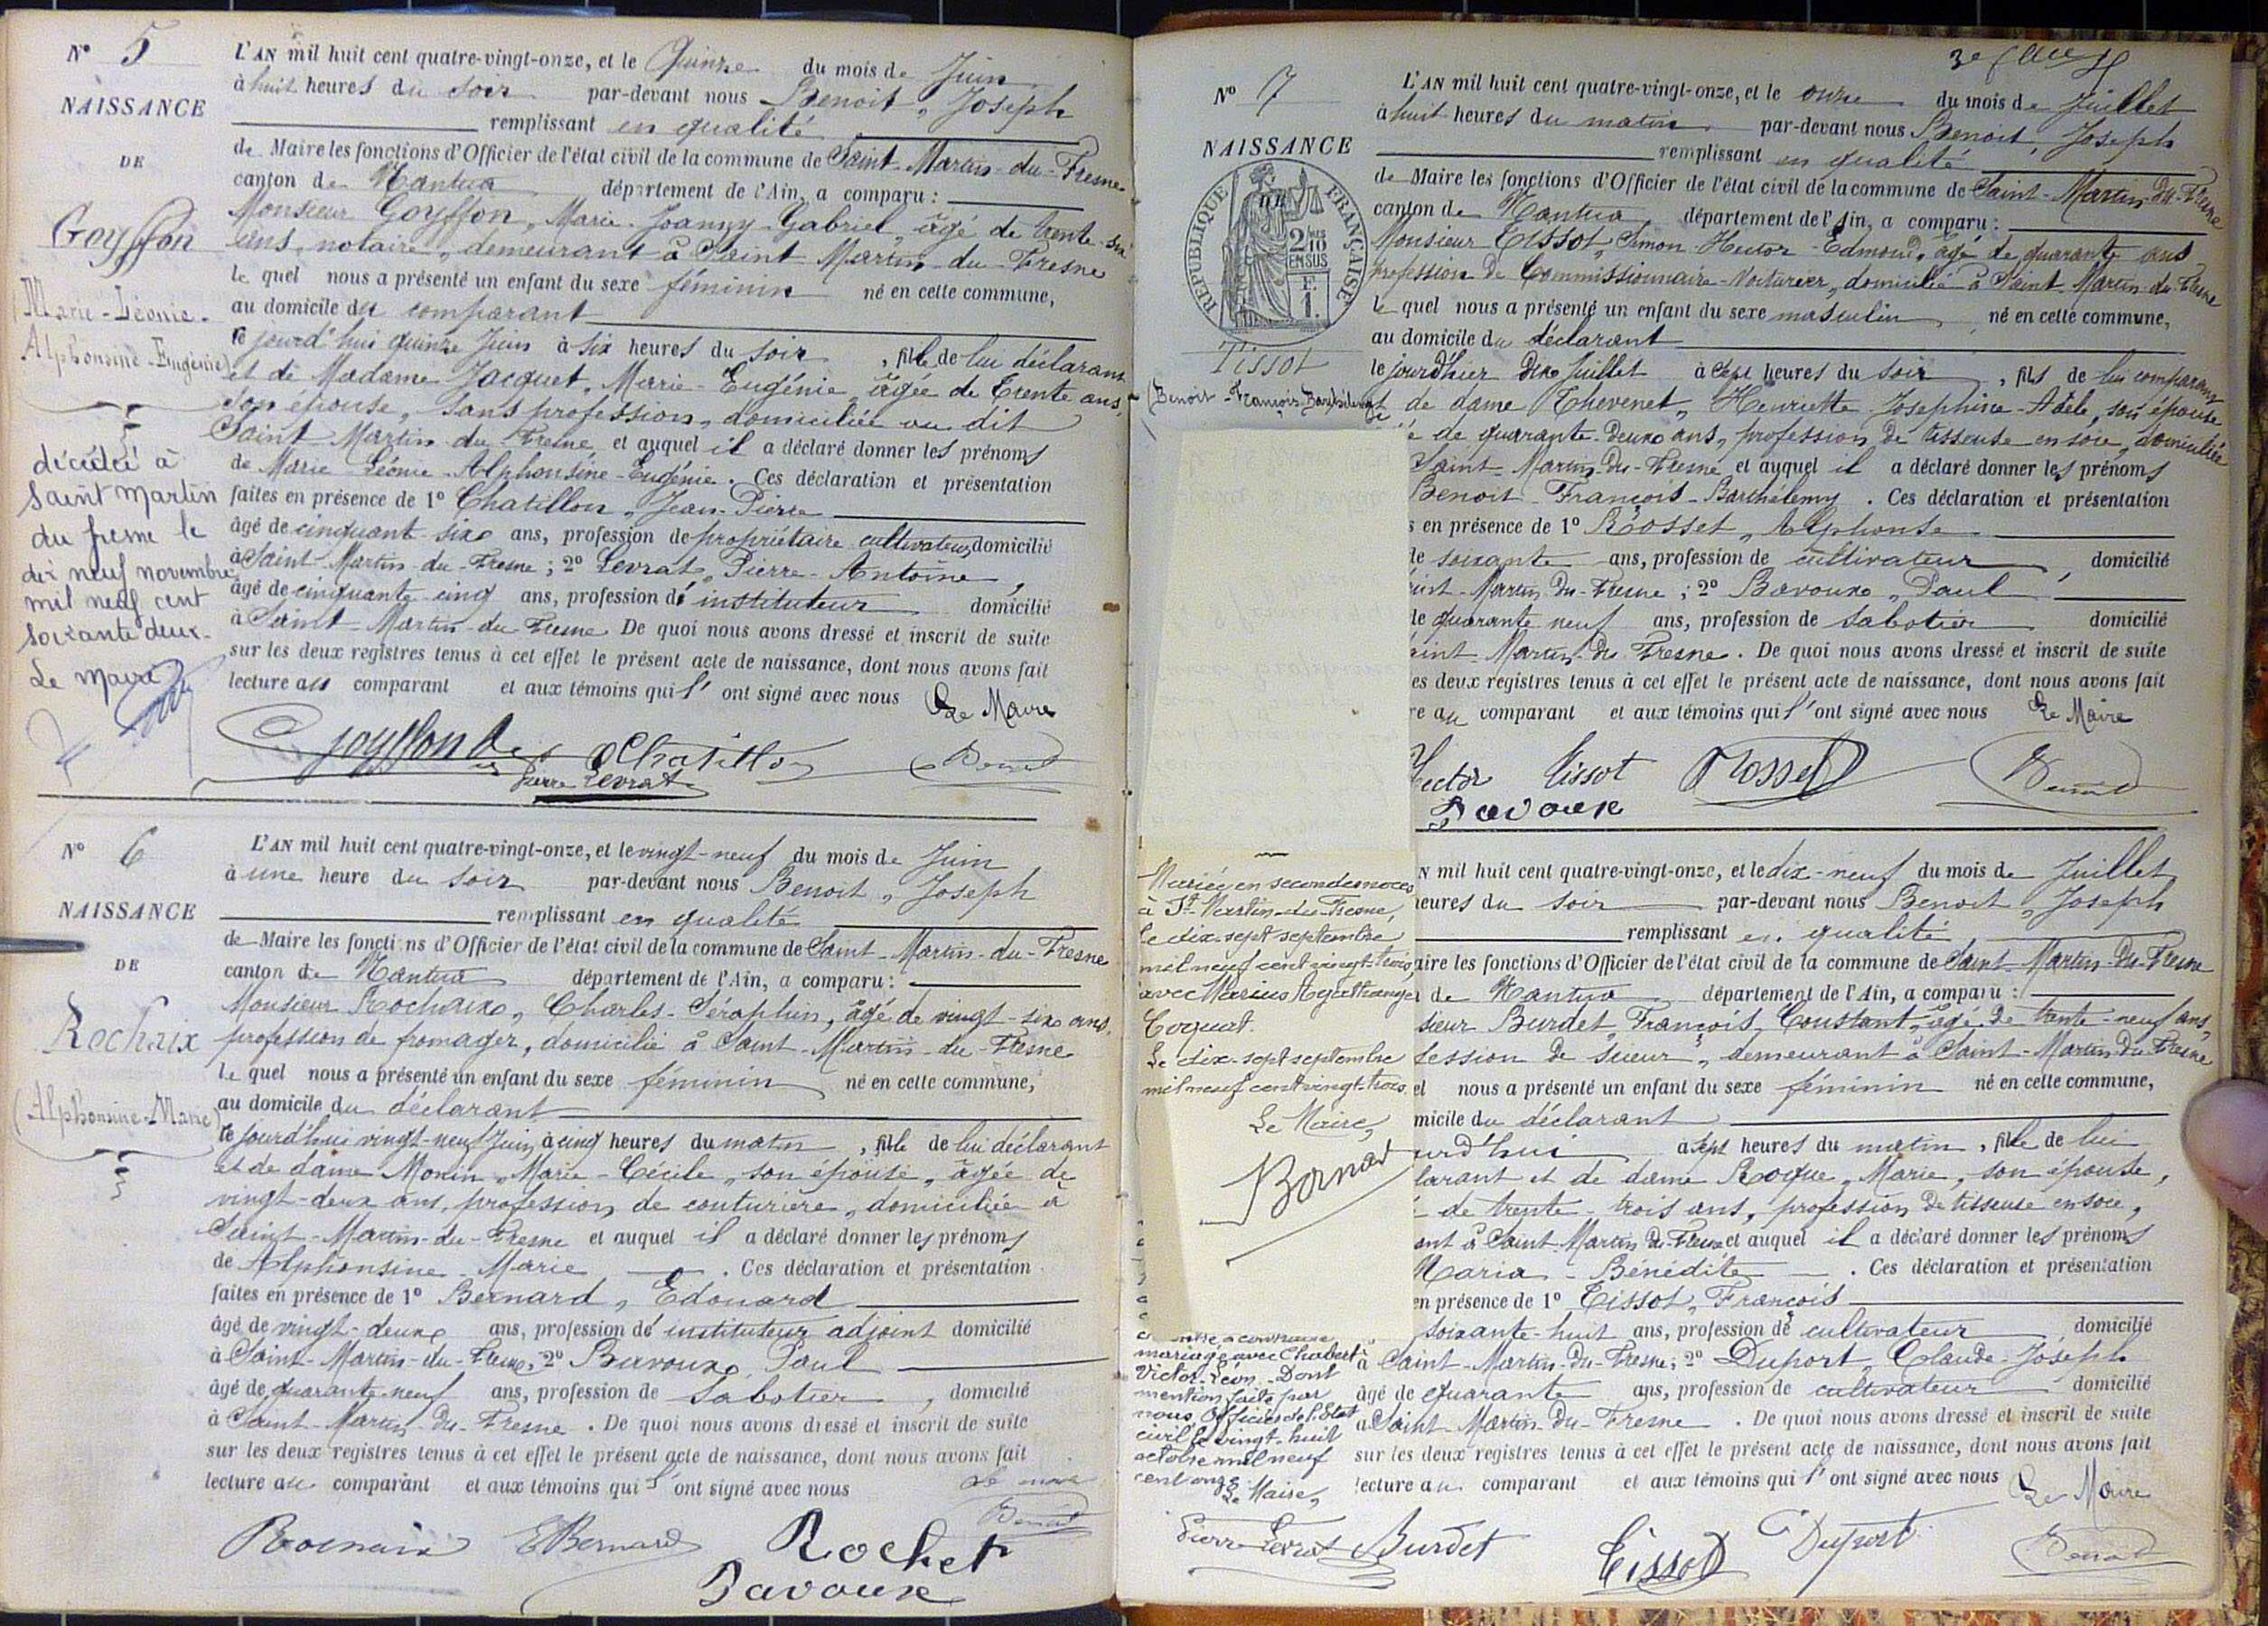 N° 5
NAISSANCE
DE
Goyffon
(Marie-Léonie-
Alphonsine-Eugénie)
décédée à
Saint Martin
du fresne le
dix neuf novembre
mil neuf cent
soixante deux.
Le Maire
L'AN mil huit cent quatre-vingt-onze, et le Quinze du mois de Juin
à huit heures du soir par-devant nous Benoit, Joseph
remplissant en qualité
de Maire les fonctions d'Officier de l'état civil de la commune de Saint-Martin-du-Fresne
canton de Nantua département de l'Ain, a comparu :
Monsieur Goyffon, Marie-Joanny-Gabriel, âgé de trente-six
ans, notaire, demeurant à Saint Martin-du-Fresne
le quel nous a présenté un enfant du sexe féminin né en cette commune,
au domicile du comparant
ce jourd'hui quinze Juin à six heures du soir, fille de lui déclarant
et de Madame Jacquet, Marie-Eugénie, âgée de trente ans,
son épouse, sans profession, domiciliée au dit
Saint Martin-du-Fresne et auquel il a déclaré donner les prénoms
de Marie-Léonie-Alphonsine-Eugénie. Ces déclaration et présentation
faites en présence de 1° Chatillon, Jean-Pierre
âgé de cinquant-six ans, profession de propriétaire cultivateur, domicilié
à Saint-Martin-du-Fresne ; 2° Levrat, Pierre-Antoine,
âgé de cinquante-cinq ans, profession d'instituteur domicilié
à Saint-Martin-du-Fresne De quoi nous avons dressé et inscrit de suite
sur les deux registres tenus à cet effet le présent acte de naissance, dont nous avons fait
lecture au comparant et aux témoins qui l'ont signé avec nous Le Maire
Goyffon Chatillon Benoit
Pierre Levrat
N° 6
NAISSANCE
DE
Rochaix
(Alphonsine-Marie)
L'AN mil huit cent quatre-vingt-onze, et le vingt-neuf du mois de Juin
à une heure du soir par-devant nous Benoit, Joseph
remplissant en qualité
de Maire les fonctions d'Officier de l'état civil de la commune de Saint-Martin-du-Fresne
canton de Nantua département de l'Ain, a comparu :
Monsieur Rochaix, Charles-Séraphin, âgé de vingt-six ans,
profession de fromager, domicilié à Saint-Martin-du-Fresne
le quel nous a présenté un enfant du sexe féminin né en cette commune,
au domicile du déclarant
ce jourd'hui vingt-neuf Juin, à cinq heures du matin, fille de lui déclarant
et de dame Monin, Marie-Cécile, son épouse, âgée de
vingt-deux ans, profession de couturière, domiciliée à
Saint-Martin-du-Fresne et auquel il a déclaré donner les prénoms
de Alphonsine-Marie. Ces déclaration et présentation
faites en présence de 1° Bernard, Edouard
âgé de vingt-deux ans, profession d'instituteur adjoint domicilié
à Saint-Martin-du-Fresne, 2° Bavoux, Paul
âgé de quarante-neuf ans, profession de sabotier, domicilié
à Saint-Martin-du-Fresne. De quoi nous avons dressé et inscrit de suite
sur les deux registres tenus à cet effet le présent acte de naissance, dont nous avons fait
lecture au comparant et aux témoins qui l'ont signé avec nous
Le maire
Rochaix EBernard Rochet Benoit
Bavoux
N° 7
NAISSANCE
RÉPUBLIQUE FRANÇAISE
2 10 EN SUS
F. 1.
Tissot
(Benoit-François-Barthélemy)
L'AN mil huit cent quatre-vingt-onze, et le onze du mois de Juillet
à huit heures du matin par-devant nous Benoit, Joseph
remplissant en qualité
de Maire les fonctions d'Officier de l'état civil de la commune de Saint-Martin-du-Fresne
canton de Nantua, département de l'Ain, a comparu :
Monsieur Tissot, Simon-Hector-Edmond, âgé de quarante ans
profession de Commissionnaire-Voiturier, domicilié à Saint-Martin-du-Fresne
le quel nous a présenté un enfant du sexe masculin né en cette commune,
au domicile du déclarant
le jourd'hier dix Juillet à sept heures du soir, fils de lui comparant
et de dame Thevenet, Henriette-Josephine-Adèle, son épouse
de quarante-deux ans, profession de tisseuse en soie, domiciliée
Saint-Martin-du-Fresne et auquel il a déclaré donner les prénoms
Benoit-François-Barthélemy. Ces déclaration et présentation
s en présence de 1° Rosset, Alphonse
de soixante ans, profession de cultivateur, domicilié
aint-Martin-du-Fresne ; 2° Bavoux, Paul
de quarante neuf ans, profession de sabotier domicilié
aint-Martin-du-Fresne. De quoi nous avons dressé et inscrit de suite
es deux registres tenus à cet effet le présent acte de naissance, dont nous avons fait
re au comparant et aux témoins qui l'ont signé avec nous Le Maire
Hector Tissot Rosset Benoit
Bavoux
Mariée en secondes noces
à St-Martin-du-Fresne,
le dix-sept septembre
mil neuf cent vingt-trois,
avec Marius
Coquat.
Le dix-sept septembre
mil neuf cent vingt-trois.
Le Maire,
mariage avec Chabert
Victor-Léon. Dont
mention faite par
nous Officier de l'Etat
civil le vingt-huit
octobre mil neuf
cent onze.
Le Maire,
Pierre Levrat
N mil huit cent quatre-vingt-onze, et le dix-neuf du mois de Juillet
heures du soir par-devant nous Benoit, Joseph
remplissant en qualité
aire les fonctions d'Officier de l'état civil de la commune de Saint-Martin-du-Fresne
de Nantua département de l'Ain, a comparu :
sieur Burdet, François, Constant, âgé de trente-neuf ans,
fession de sueur, demeurant à Saint-Martin-du-Fresne
el nous a présenté un enfant du sexe féminin né en cette commune,
micile du déclarant
urd'hui à sept heures du matin, fille de lui
larant et de dame Roque, Marie, son épouse,
de trente-trois ans, profession de tisseuse en soie,
ant à Saint-Martin-du-Fresne et auquel il a déclaré donner les prénoms
Maria-Bénédite. Ces déclaration et présentation
en présence de 1° Tissot, François
soixante-huit ans, profession de cultivateur domicilié
à Saint-Martin-du-Fresne ; 2° Duport, Claude-Joseph
âgé de quarante ans, profession de cultivateur domicilié
à Saint-Martin-du-Fresne. De quoi nous avons dressé et inscrit de suite
sur les deux registres tenus à cet effet le présent acte de naissance, dont nous avons fait
lecture au comparant et aux témoins qui l'ont signé avec nous Le Maire
Burdet Tissot Duport Benoit